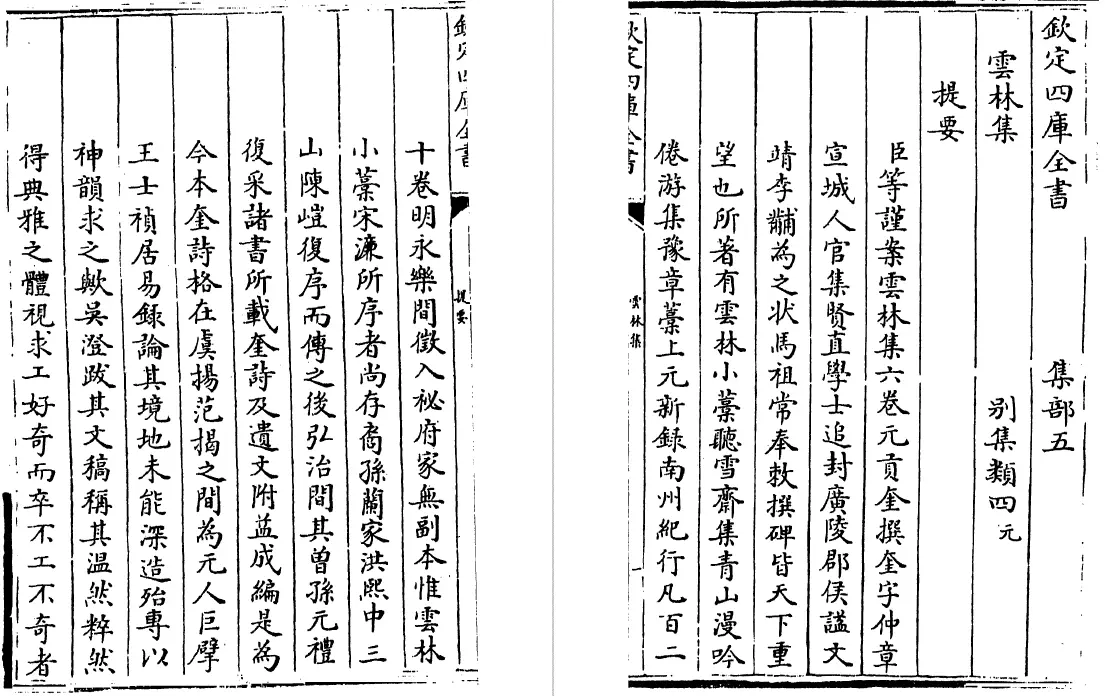 欽定四庫全書 集部五
雲林集 别集類四元
提要
臣等謹案雲林集六卷元貢奎撰奎字仲章
宣城人官集賢直學士追封廣陵郡侯諡文
靖李黼為之狀馬祖常奉敕撰碑皆天下重
望也所著有雲林小藁聽雪齋集青山漫吟
倦游集豫章藁上元新録南州紀行凡百二
欽定四庫全書
雲林集
提要
一
十卷明永樂間徵入秘府家無副本惟雲林
小藁宋濂所序者尚存裔孫蘭家洪熙中三
山陳嵦復序而傳之後弘治間其曽孫元禮
復采諸書所載奎詩及遺文附益成編是為
今本奎詩格在虞揚范揭之間為元人巨擘
王士禎居易録論其境地未能深造殆專以
神韻求之歟吳澄跋其文稿稱其温然粹然
得典雅之體視求工好奇而卒不工不奇者